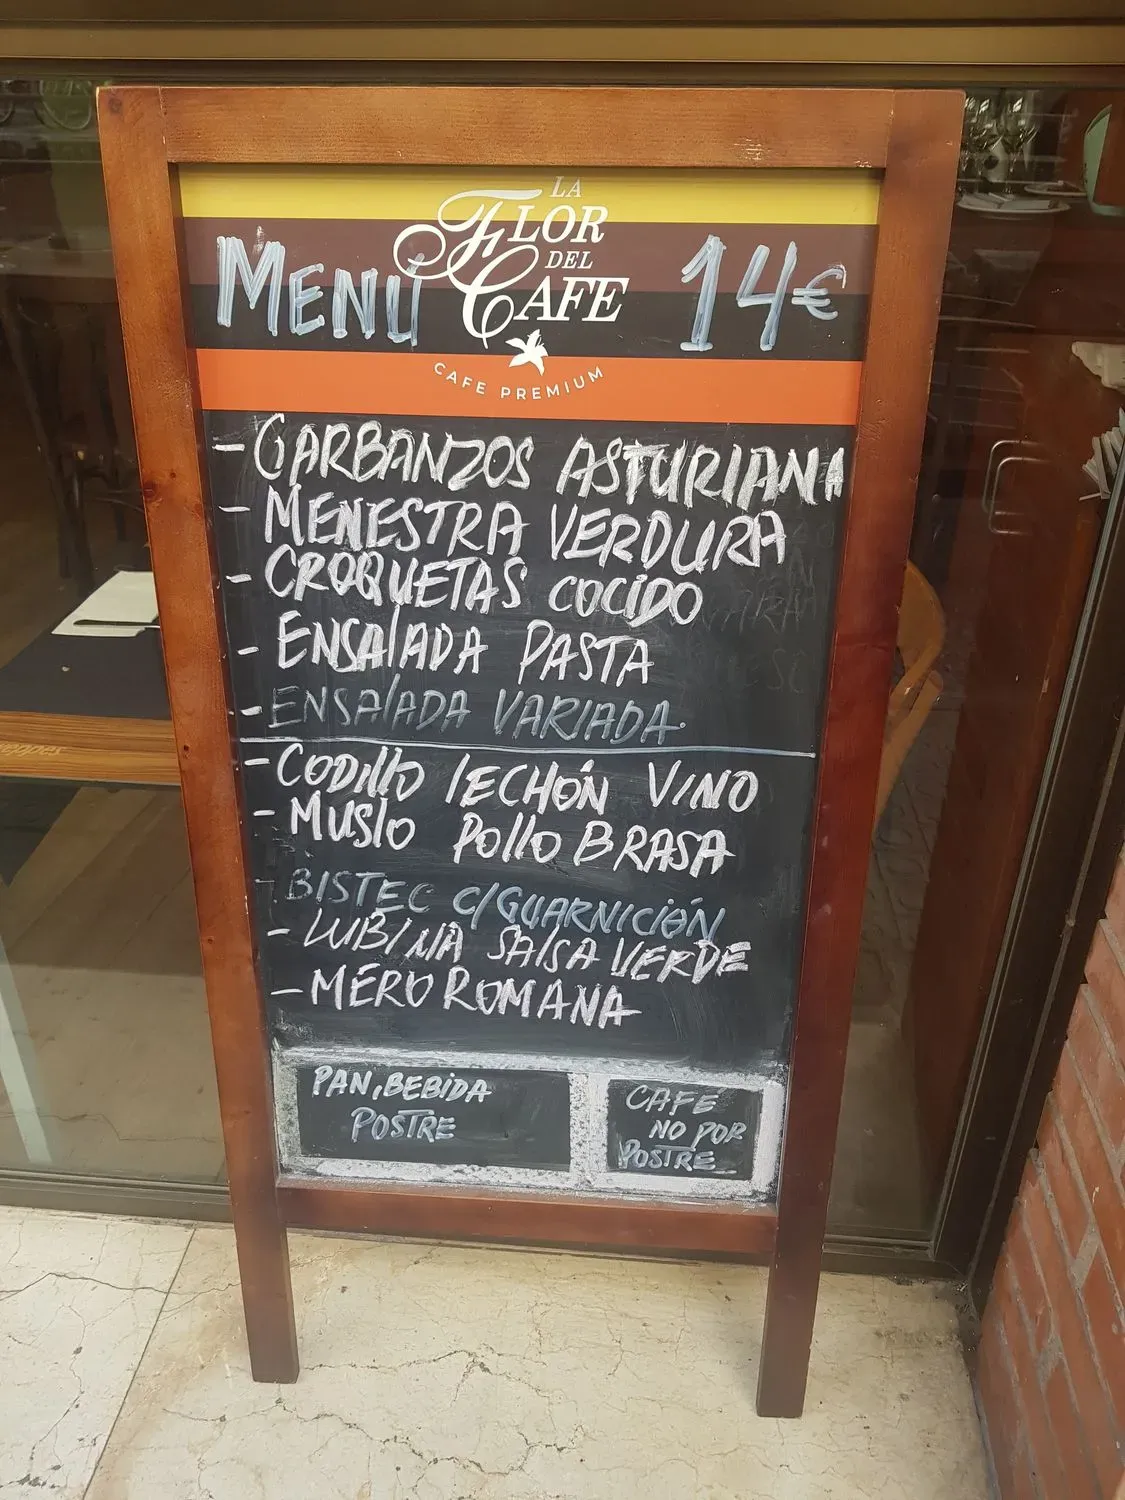 LA
FLOR
DEL
CAFE
MENÚ 14€
CAFE PREMIUM
- GARBANZOS ASTURIANA
- MENESTRA VERDURA
- CROQUETAS COCIDO
- ENSALADA PASTA
- ENSALADA VARIADA
- CODILLO LECHÓN VINO
- MUSLO POLLO BRASA
- BISTEC C/GUARNICIÓN
- LUBINA SALSA VERDE
- MERO ROMANA
PAN, BEBIDA
POSTRE
CAFE
NO POR
POSTRE